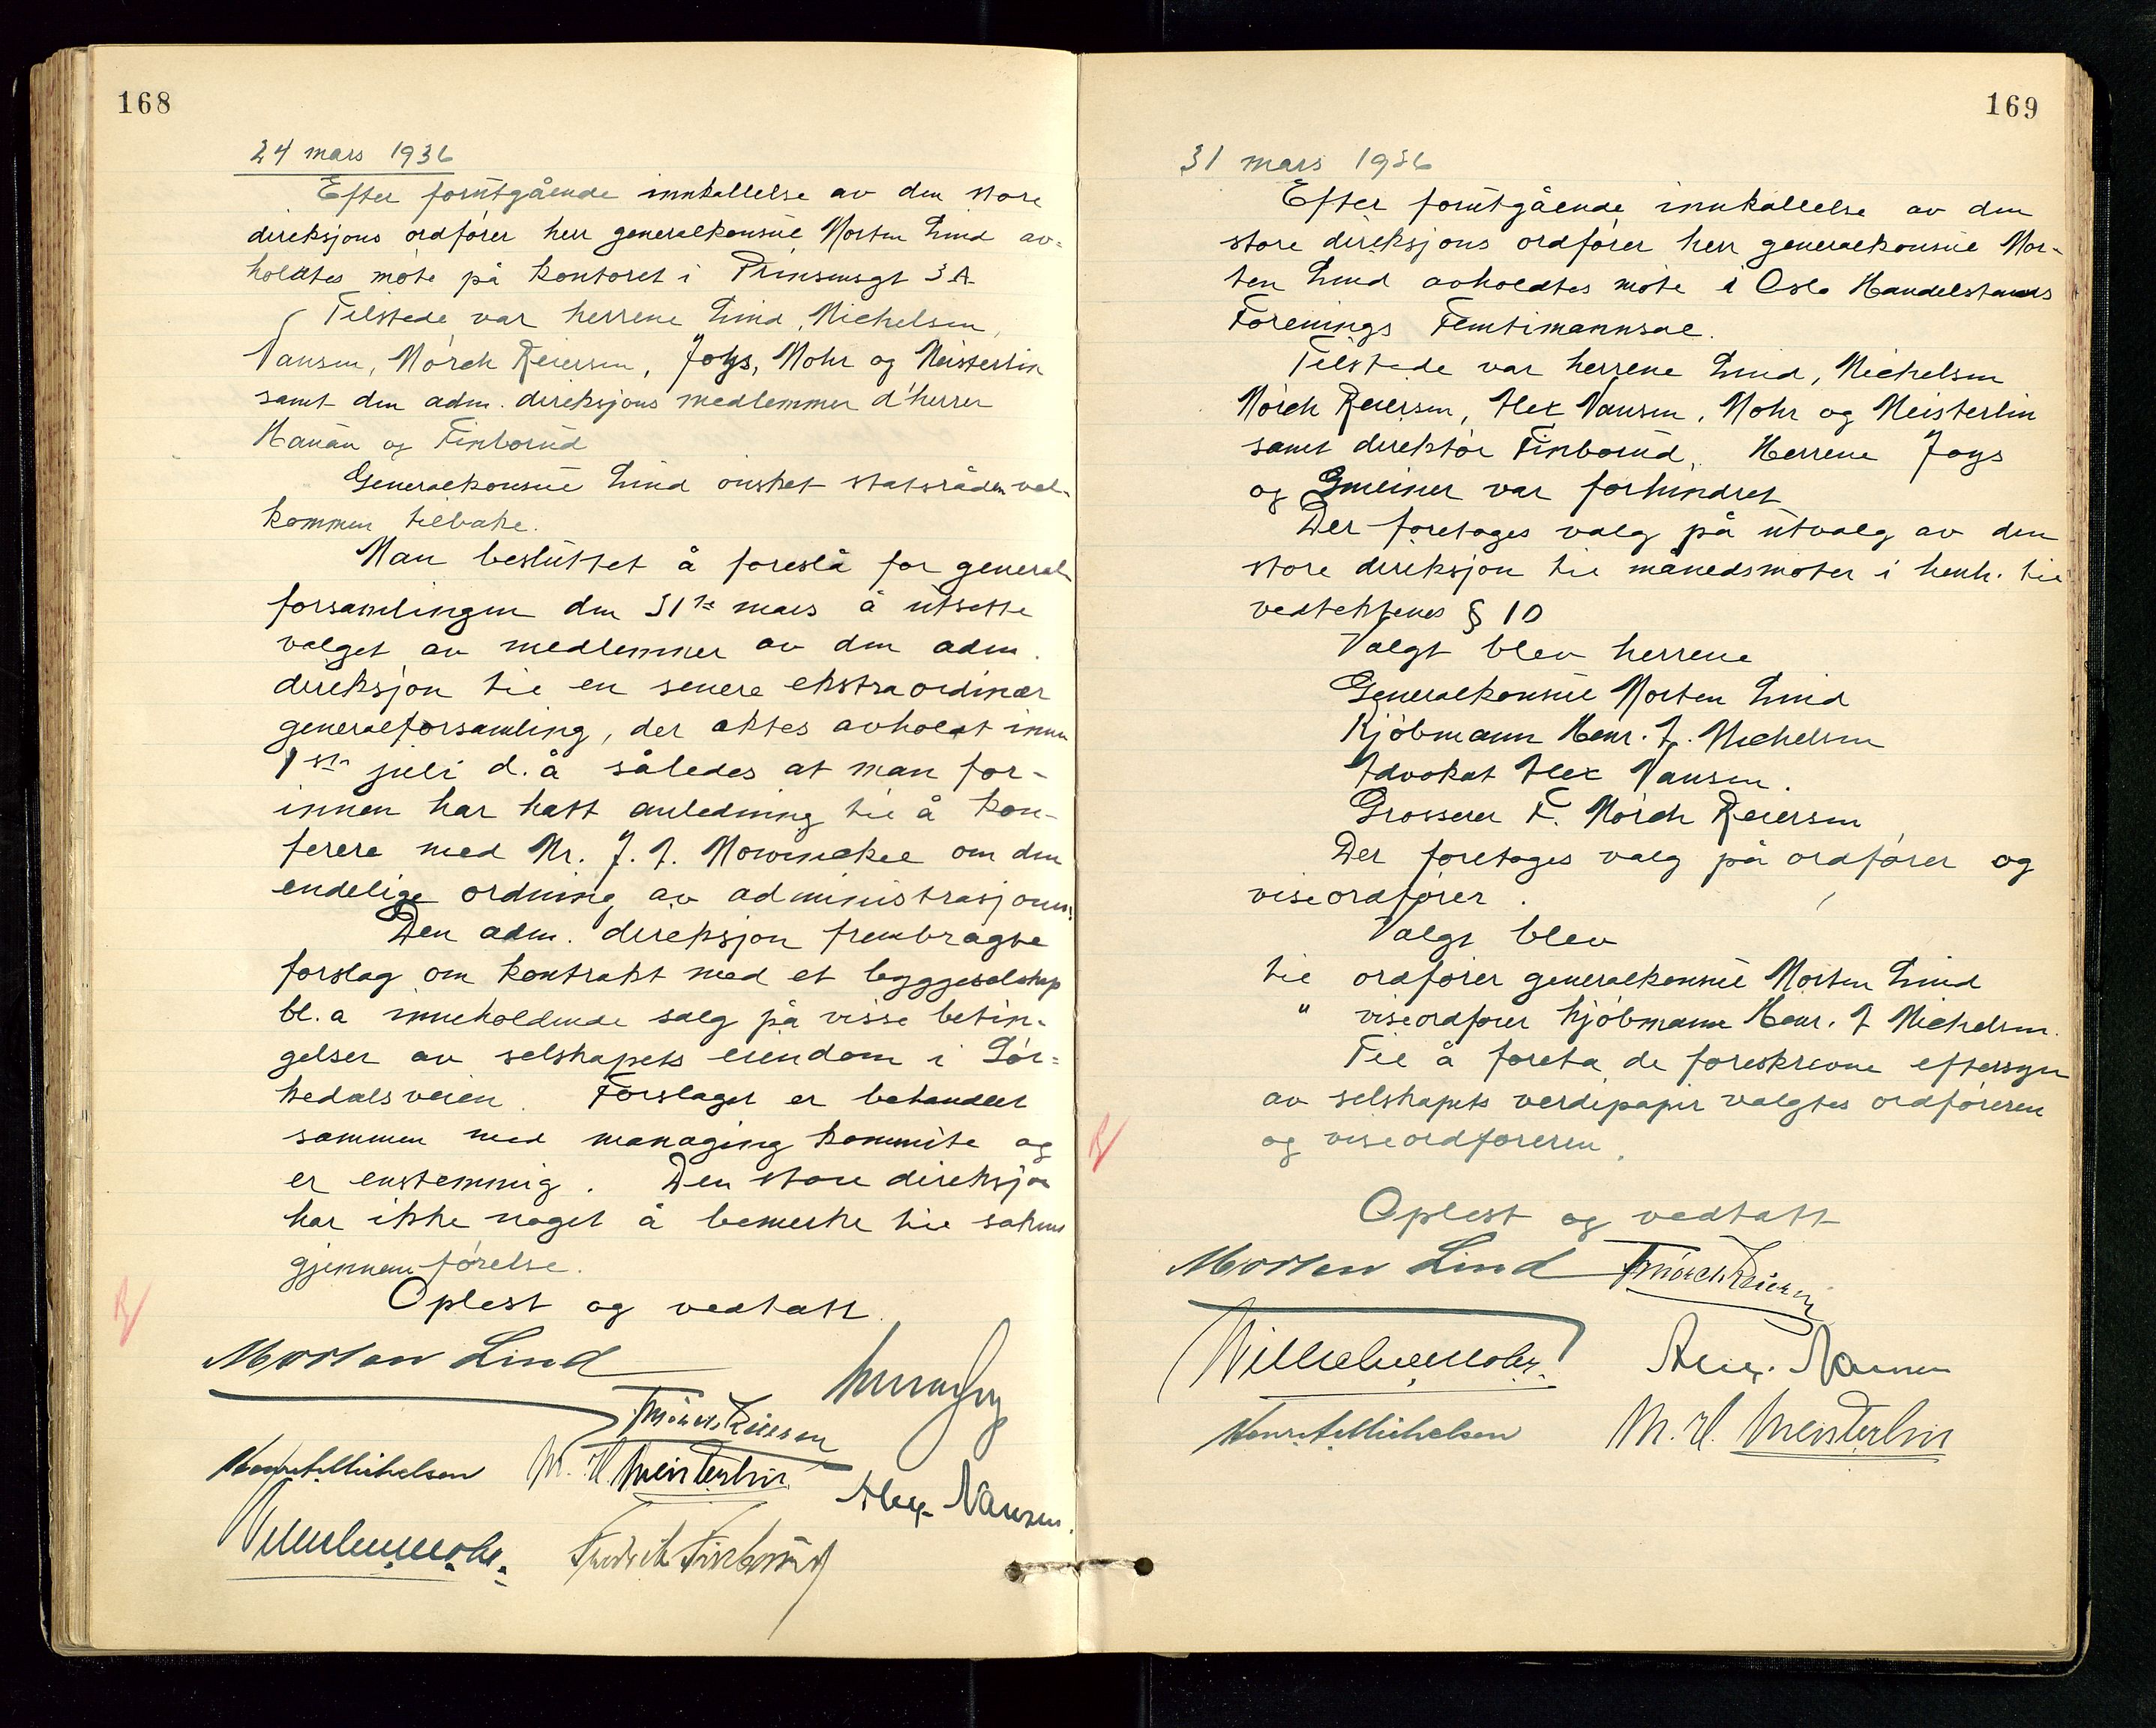 168
24 mars 1936
Efter forutgående innkallelse av den store
direksjons ordfører herr generalkonsul Morten Lind av-
holdtes møte på kontoret i Prinsensgt 3A
Tilstede var herrene Lind, Michelsen,
Nansen, Mørch Reiersen, Joys, Mohr og Meisterlin
samt den adm. direksjons medlemmer d'herrer
Hauan og Finborud
Generalkonsul Lind ønsket statsråden vel-
kommen tilbake.
Man besluttet å foreslå for general
forsamlingen den 31te mars å utsette
valget av medlemmer av den adm.
direksjon til en senere ekstraordinær
generalforsamling, der aktes avholdt innen
1ste juli d.å således at man for-
innen har hatt anledning til å kon-
ferere med Mr. J. J. Mowinckel om den
endelige ordning av administrasjonen.
Den adm. direksjon frembragte
forslag om kontrakt med et byggeselskap
bl.a inneholdende salg på visse betin-
gelser av selskapets eiendom i Sør-
kedalsveien. Forslaget er behandlet
sammen med managing kommite og
er enstemmig. Den store direksjon
har ikke noget å bemerke til sakens
gjennemførelse.
Oplest og vedtatt.
Morten Lind
F Mørch Reiersen
Henr. J. Michelsen M. H. Meisterlin
Alex. Nansen.
Wilhelm Mohr. Fredrik Finborud
169
31 mars 1936
Efter forutgående innkallelse av den
store direksjons ordfører herr generalkonsul Mor-
ten Lind avholdtes møte i Oslo Handelstands
Forenings Femtimannsal.
Tilstede var herrene Lind, Michelsen
Mørch Reiersen, Alex Nansen, Mohr og Meisterlin
samt direktør Finborud. Herrene Joys
og Gmeiner var forhindret
Der foretages valg på utvalg av den
store direksjon til månedsmøter i henh. til
vedtektenes § 10
Valgt blev herrene
Generalkonsul Morten Lind
Kjøbmann Henr. J. Michelsen
Advokat Alex Nansen.
Grosserer F. Mørch Reiersen
Der foretages valg på ordfører og
viseordfører.
Valgt blev
til ordfører generalkonsul Morten Lind
" viseordfører kjøbmann Henr. J Michelsen.
Til å foreta de foreskrevne eftersyn
av selskapets verdipapir valgtes ordføreren
og viseordføreren.
Oplest og vedtatt
Morten Lind F Mørch Reiersen
Wilhelm Mohr. Alex. Nansen
Henr. J. Michelsen M. H. Meisterlin